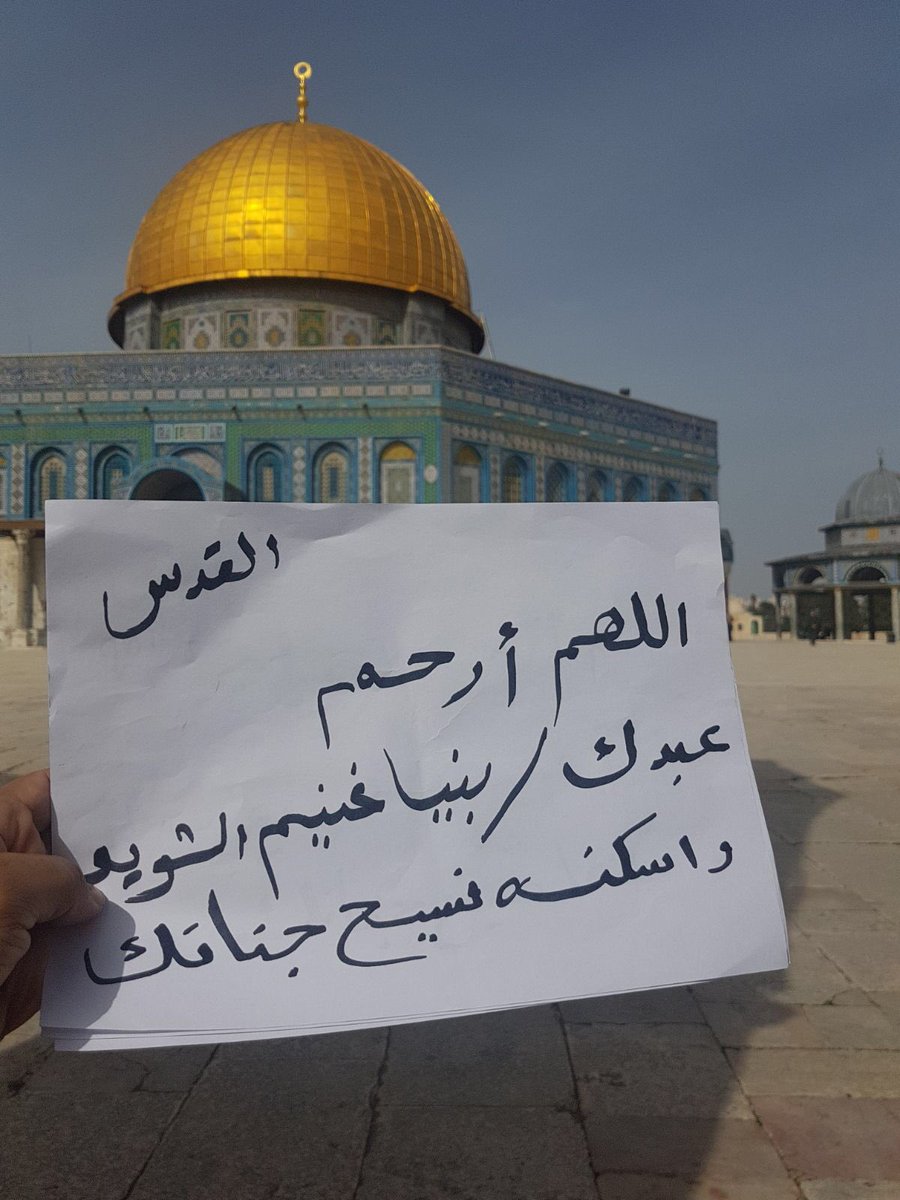 القدس
اللهم أرحم
عبدك / بنيا غنيم الشويع
واسكنه فسيح جناتك